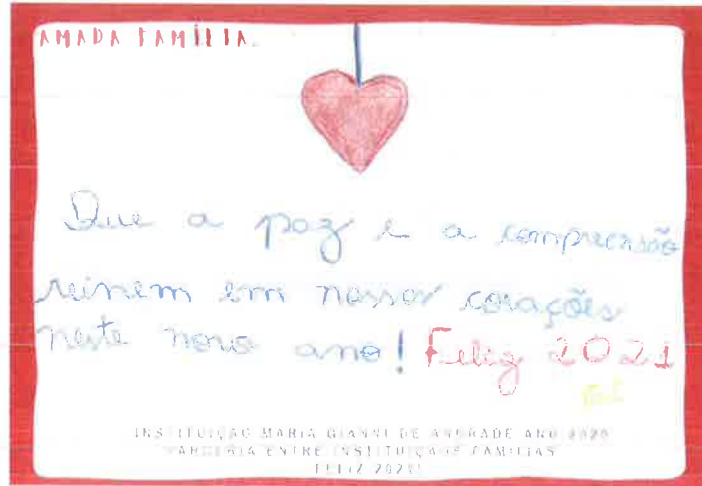 AMADA FAMÍLIA.
Que a paz e a compreensão
reinem em nossos corações
neste novo ano! Feliz 2021
INSTITUIÇÃO MARIA GIANNI DE ANDRADE ANO 2020
PARCERIA ENTRE INSTITUIÇÃO E FAMÍLIAS
FELIZ 2021!